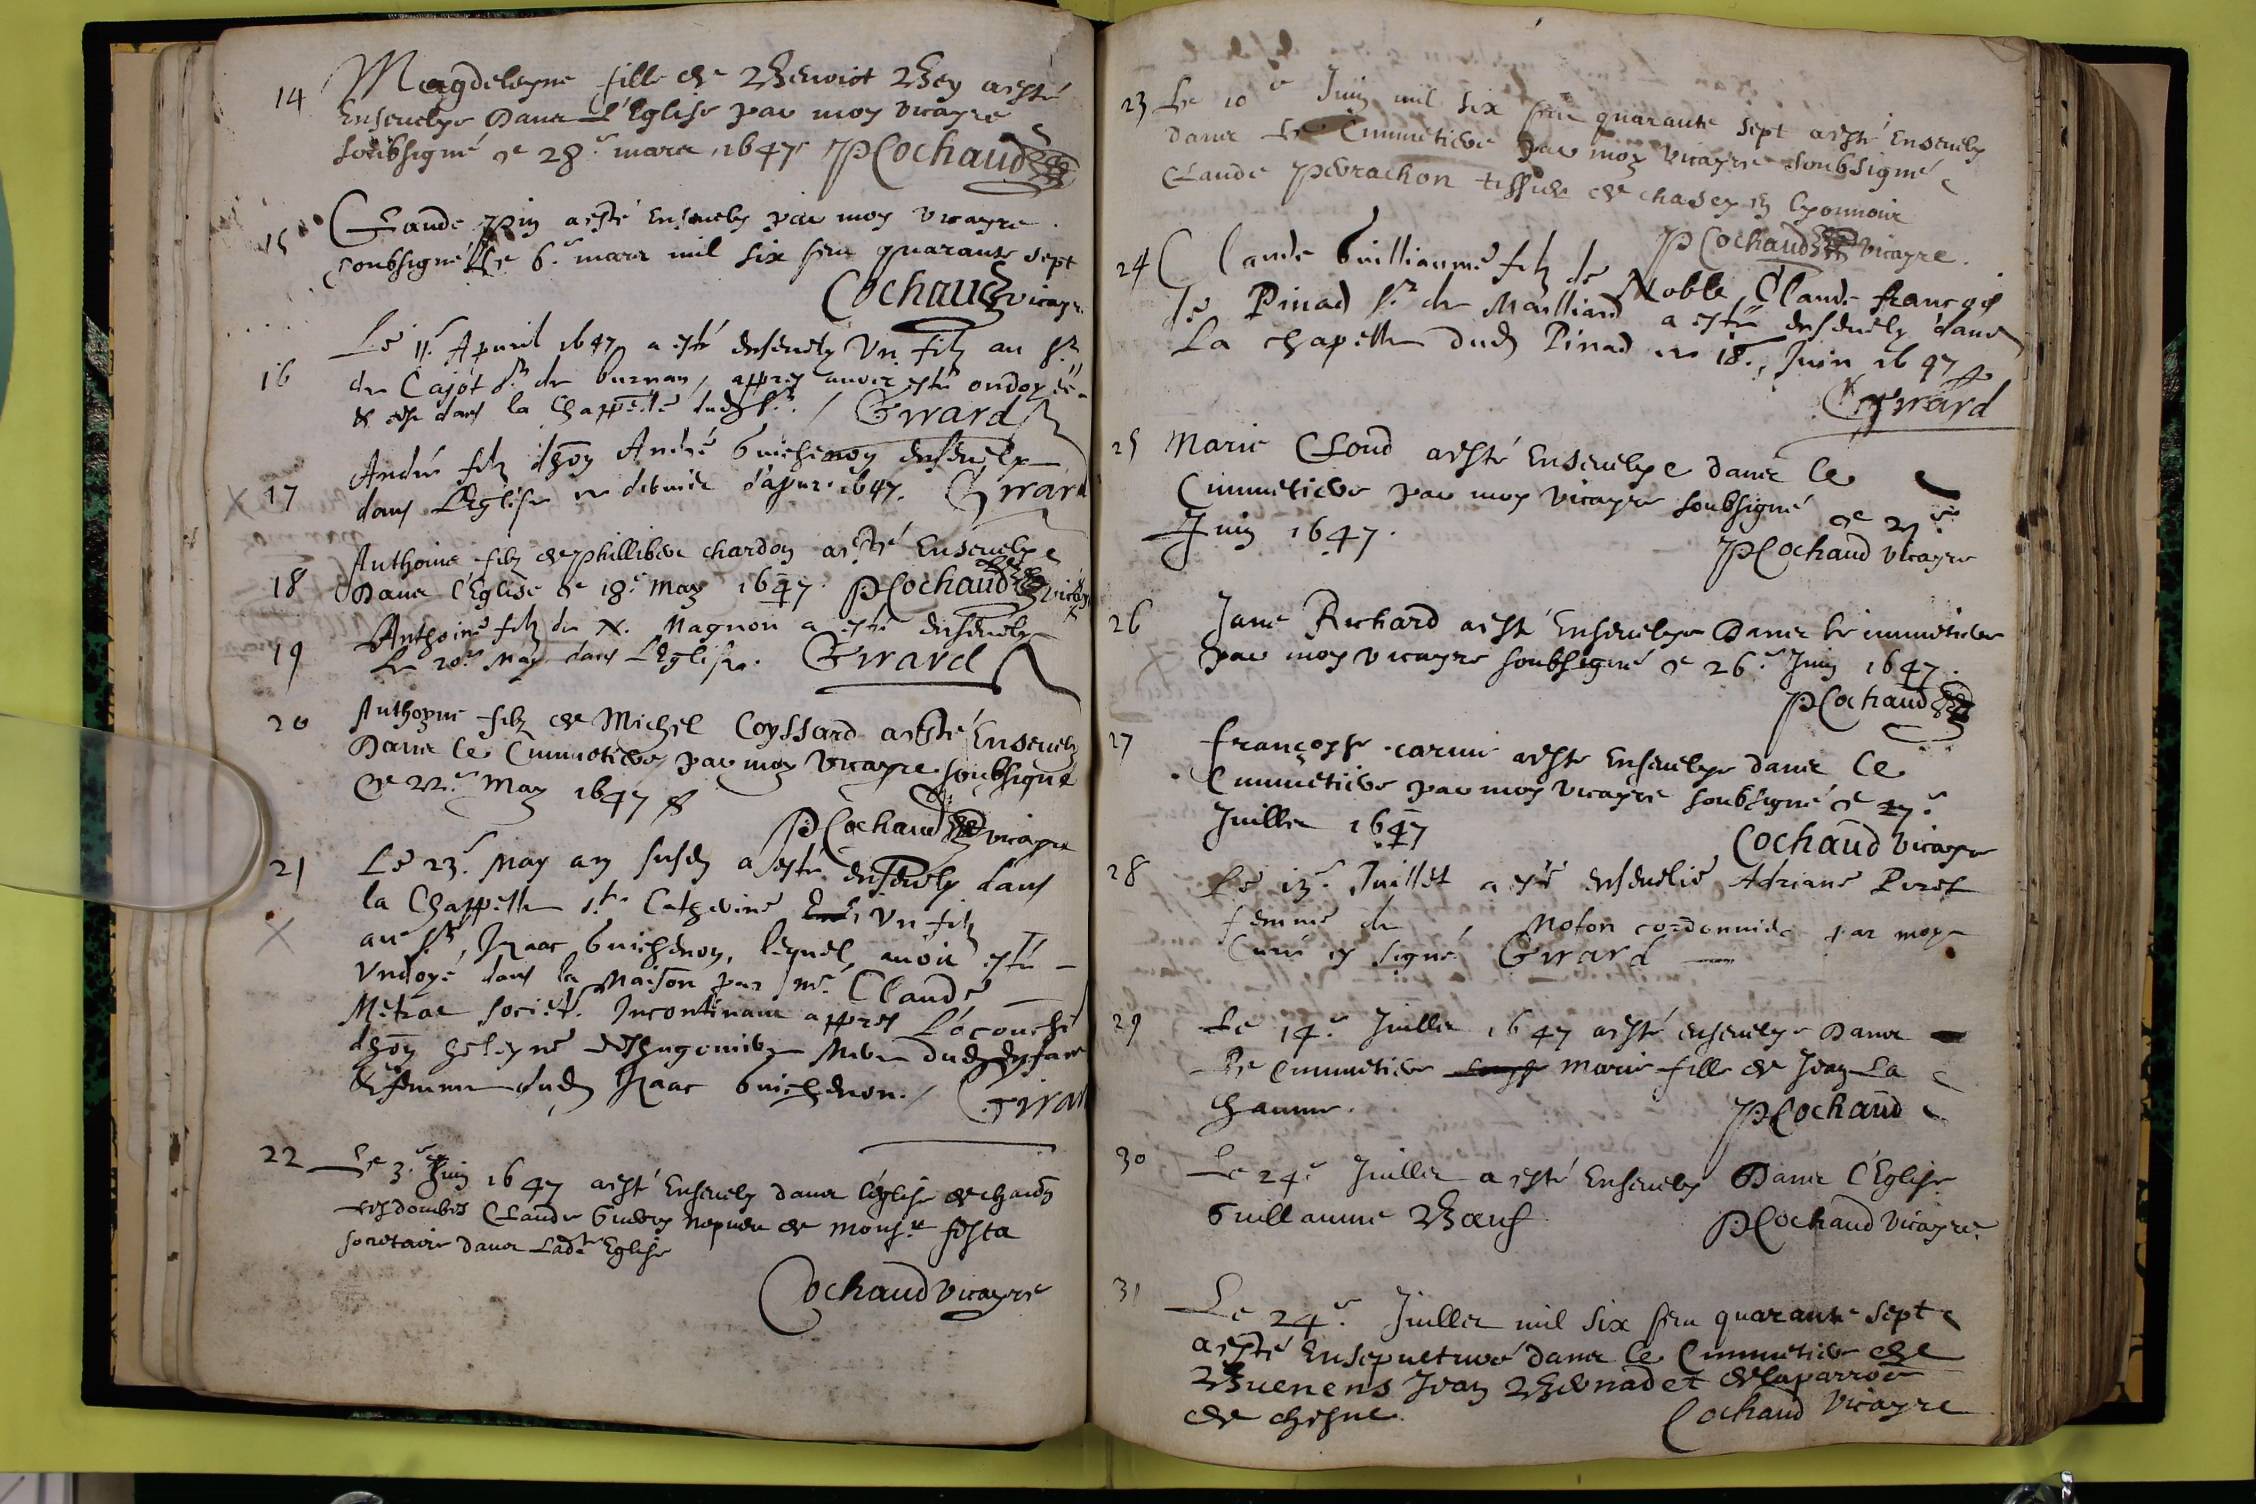 14 Magdeleyne fille de Bey a esté
Ensevelye Dans L'Eglise par moy vicayre
soubsigné ce 28e mars 1647 PCochaud
15 Claude pin a esté Ensevely par moy vicayre
soubsigné le 6e mars mil six sens quarante sept
Cochaud vicayre
Le 11e Apvril 1647 a esté ensevely Un filz au sr
16 de Cajot sr de burnan, appres avoir esté ondoyé
& est dans la Chappelle dud sr. / Girard
André filz d'hon André Guichenon ensevely
17 dans L'Eglise ce dernier d'apvr. 1647. Girard
Anthoine filz de Phillibert chardon a esté Ensevelye
18 Dans l'Eglise le 18e May 1647. PCochaud
Anthoine filz de N. Magnon a esté ensevely
19 Le 20e May dans L'Eglise. Girard
20 Anthoyne filz de Michel Coyssard a esté Ensevely
Dans le Cimmetiere par moy vicayre soubsigné
Ce 22e May 1647
PCochaud vicayre
21 Le 23e May an susd a esté ensevely dans
la Chappelle ste Catherine Un filz
au sr Isaac Guichenon, lequel avoit esté
Undoyé dans la Maison par mre Claude
Metrae societ. Incontinant appres L'acouche
d'hon heleyne mere dud enfant
& femme dud Isaac Guichenon. / Girard
22 Le 3e Juin 1647 a esté Ensevely dans l'église de
Claude nepveu de Monsr
secretaire dans Ladte Eglise
Cochaud vicayre
23 Le 10e Juin mil six sens quarante sept a esté Ensevely
dans Le Cimmetiere par moy vicayre soubsigné
Claude Perrachon tissier de chasey en lyonnoix
PCochaud vicayre.
24 Claude Guilliaume filz de Noble Claude françois
de Pinad sr de Mailliard a esté ensevely dans
La chapelle dud Pinad ce 18e Juin 1647
Girard
25 Marie Cloud a esté Ensevelye dans le
Cimmetiere par moy vicayre soubsigné ce
Juin 1647.
PCochaud vicayre
26 Jane Richard a esté Ensevelye Dans le cimmetiere
par moy vicayre soubsigné ce 26e Juin 1647.
PCochaud
27 françoyse carmie a este Ensevelye dans le
Cimmetiere par moy vicayre soubsigné ce
Juillet 1647
Cochaud vicayre
28 Le 13e Juillet a esté ensevelie Adriane Peret
femme de Noton cordonnier par moy
Curé Girard
29 Le 14e Juillet 1647 a esté ensevelye Dans
Le Cimmetiere Marie fille de Jean La
chaume.
PCochaud
30 Le 24e Juillet a esté Ensevely Dans l'Eglise
Guillaume Bœuf
PCochaud vicayre.
31 Le 24e Juillet mil six sens quarante sept
a esté Ensepulturé dans le Cimmetiere de
Buenens Jean Bernadet de la parroe
de chesne.
Cochaud vicayre